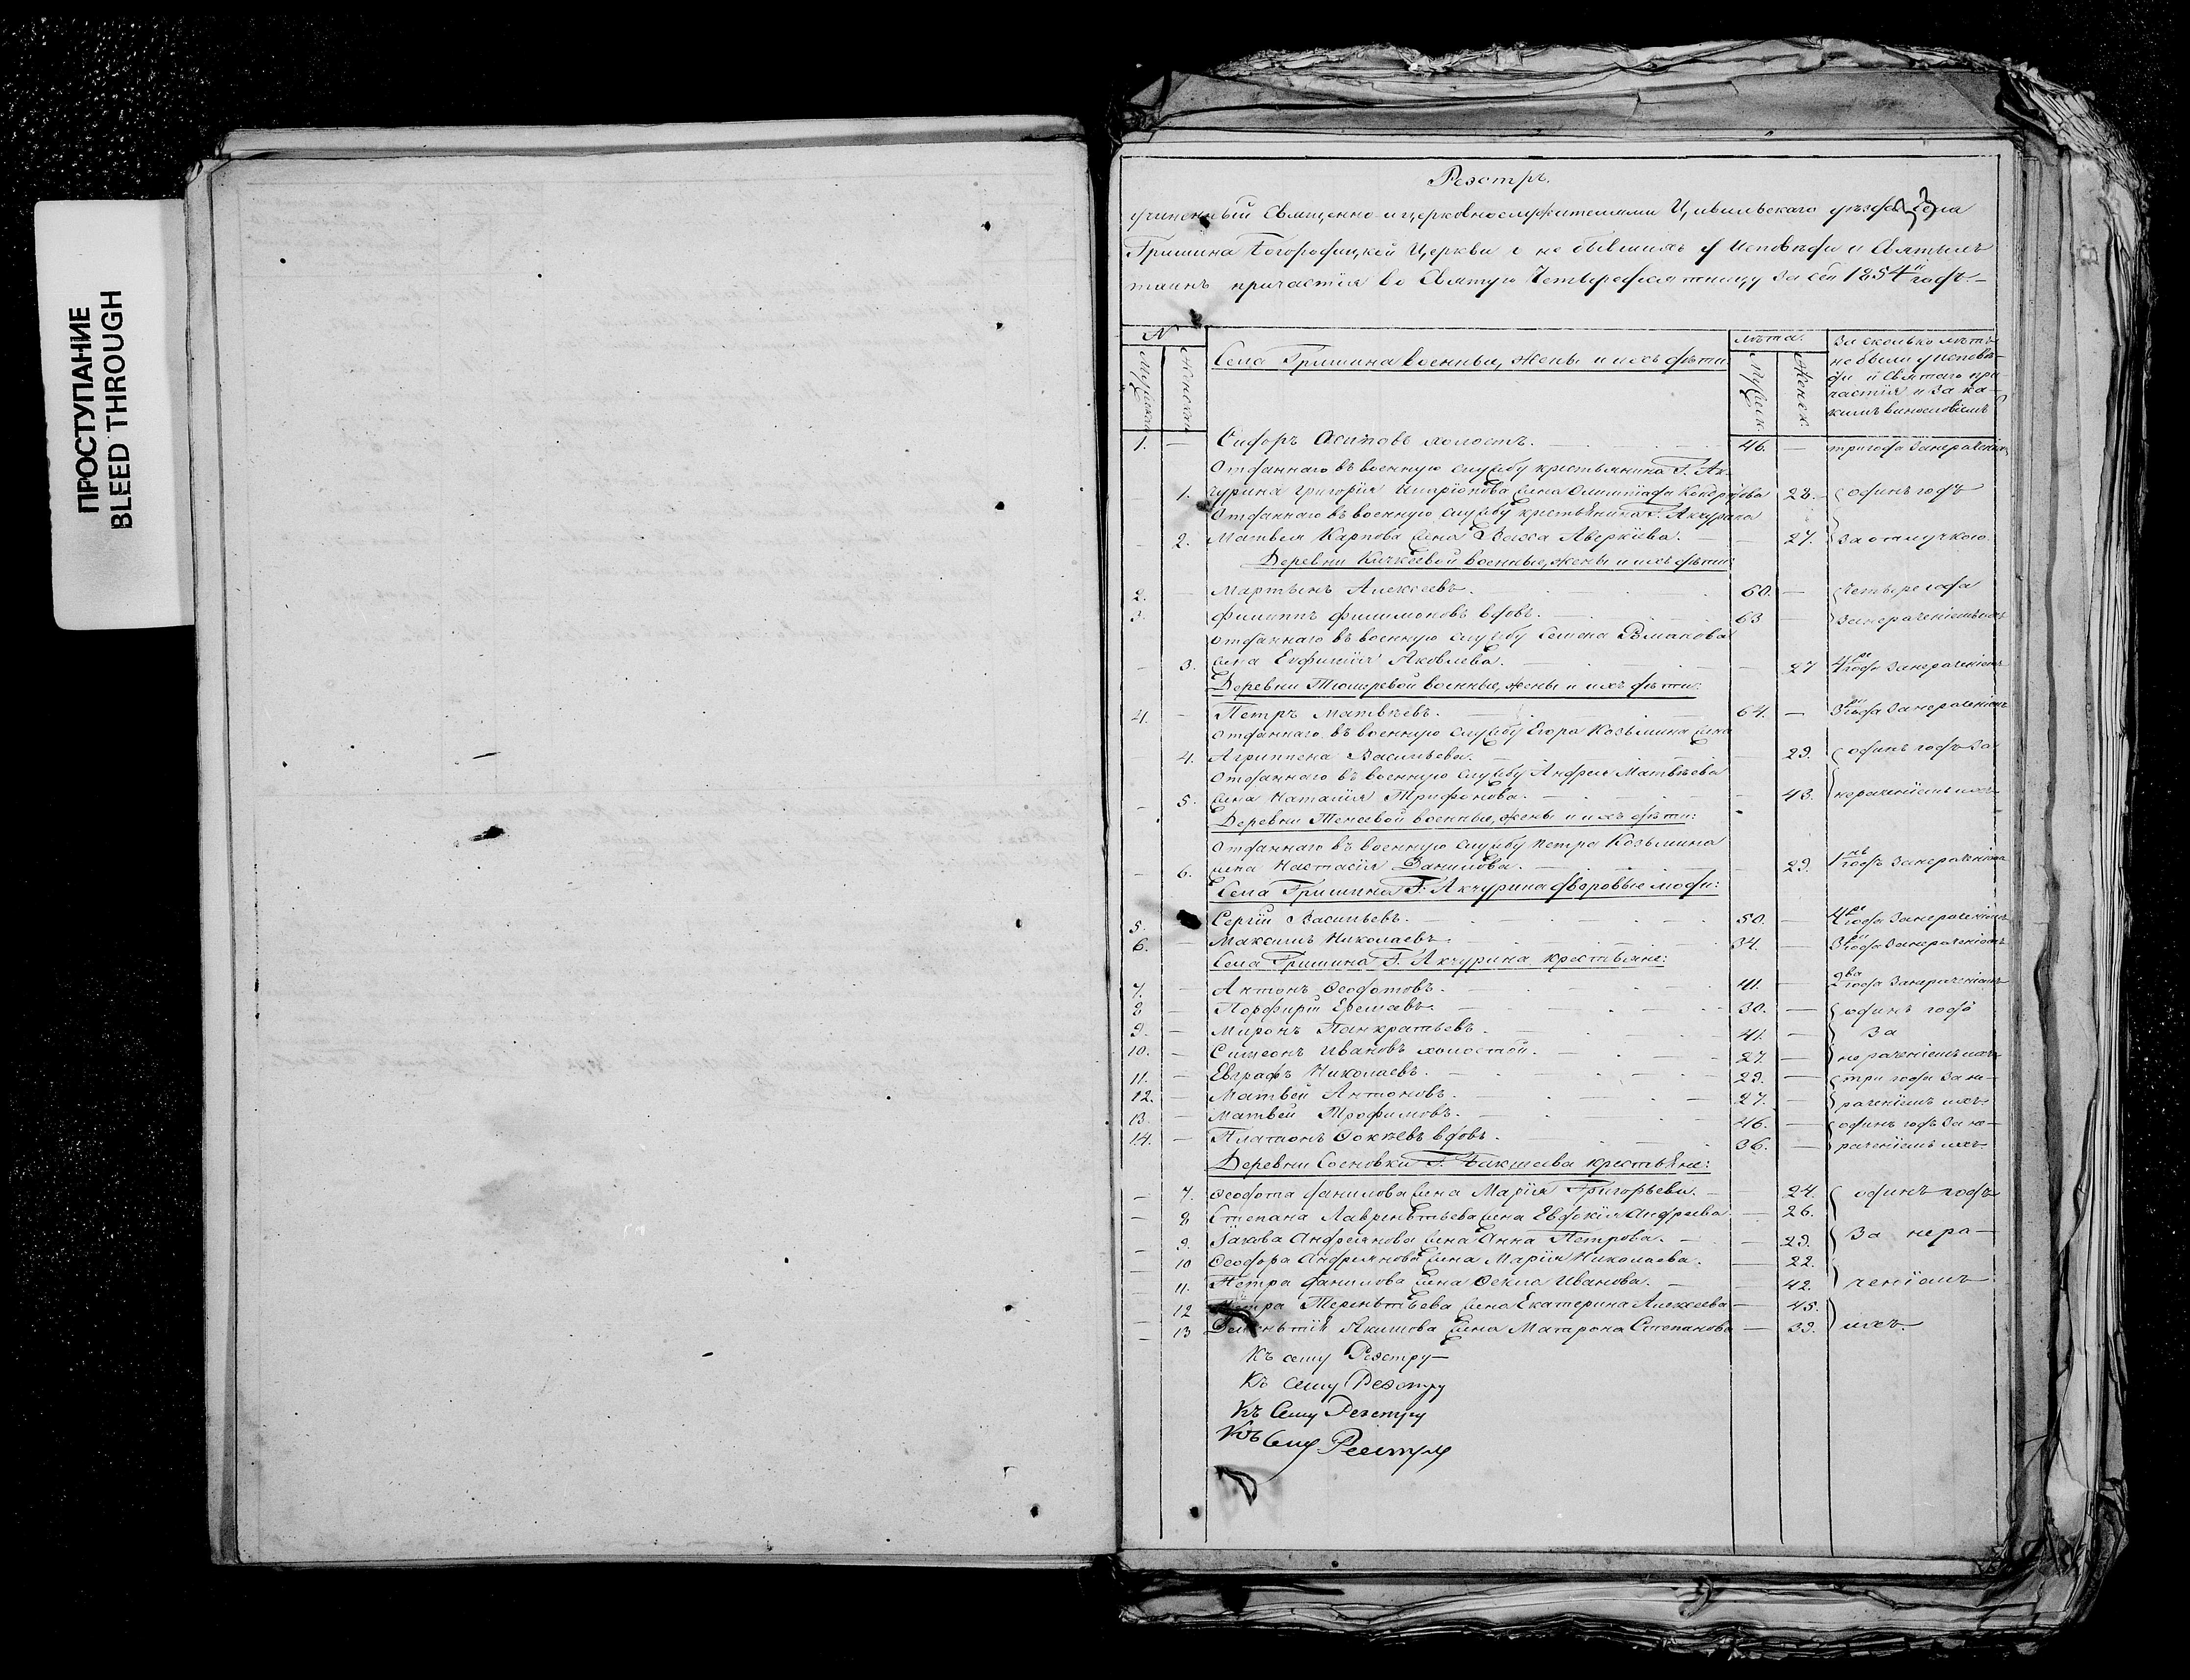 ПРОСТУПАНИЕ
BLEED THROUGH
Реэстръ.
учиненный Священно-и церковнослужителями Цивильскаго уѣзда села
Гришина Богородицкой Церкви о не бывшихъ у Исповѣди и Святыхъ
таинъ причастія во Святую Четыредесятницу за сей 1854й годъ.
№
лѣта.
Мужеска
Женска
Села Гришина военные, жены и ихъ дѣти
Мужеск.
Женск.
За сколько лѣтъ
не были у исповѣ-
ди и Святаго при-
частія и за ка-
кимъ винословіемъ
1. — Сидоръ Осиповъ холостъ. 46. — три года за нераченіемъ
Отданнаго въ военную службу крестьянина Г. Ак-
— 1. чурина Григорія жена Олимпіада 28. одинъ годъ
Отданнаго въ военную службу крестьянина Г. Акчурина
— 2. Матвея Карпова жена Васса Аверкіева. — 27. за отлучкою
Деревни Кичкеевой военные, жены и ихъ дѣти:
2. Мартынъ Алексеевъ. 60. — четыре года
3. Филиппъ Филимоновъ вдовъ. 63 — за нераченіемъ ихъ
отданнаго въ военную службу Семена Романова
— 3. жена Евфимія Яковлева. — 27 4ре года за нераченіемъ
Деревни военные, жены и ихъ дѣти:
4. — Петръ Матвѣевъ. 64. — 3ри года за нераченіемъ
Отданнаго въ военную службу Егора Козьмина жена
— 4. Агриппена Васильева. — 29. одинъ годъ за
Отданнаго въ военную службу Андрея Матвѣева
— 5. жена Наталія Трифонова. — 43. нераченіемъ ихъ
Деревни Тенеевой военные, жены и ихъ дѣти:
Отданнаго въ военную службу Петра Козьмина
— 6. жена Настасія Данилова. — 29. 1нъ годъ за нераченіемъ
Села Гришина Г. Акчурина дворовые люди:
5. Сергій Васильевъ. 50. — 4ре года за нераченіемъ
6. — Максимъ Николаевъ. 34. — 3ри года за нераченіемъ
Села Гришина Г. Акчурина крестьяне:
7. — Антонъ Ѳеодотовъ. 41. — 2ва года за нераченіемъ
8 — Порфирій 30. — одинъ годъ
9. — Миронъ Панкратьевъ. 41. — за
10. — Симеонъ Ивановъ холостой. 27. — нераченіемъ ихъ
11. — Евграфъ Николаевъ. 29. — три года за не-
12. — Матвей Антоновъ. 27. — раченіемъ ихъ
13. — Матвей Трофимовъ. 46. — одинъ годъ за не-
14. — Платонъ вдовъ. 36. — раченіемъ ихъ
Деревни Сосновки Г. Бакшеева крестьяне:
— 7. Ѳеодота Данилова жена Марія Григорьева. — 24. одинъ годъ
— 8 Степана Лаврентьева жена Евдокія Андреева. — 26.
— 9. Іакова Андреянова жена Анна Петрова. — 29. за нера-
— 10 Ѳеодора Андреянова жена Марія Николаева. — 22.
— 11. Петра Данилова жена Ѳекла Иванова. — 42. ченіемъ
— 12 Петра Терентьева жена Екатерина Алексеева — 45.
— 13 Акимова жена Матрона Степанова — 39. ихъ.
Къ сему Реэстру
Къ сему Реэстру
Къ Сему Реэстру
Къ Сему Реестру